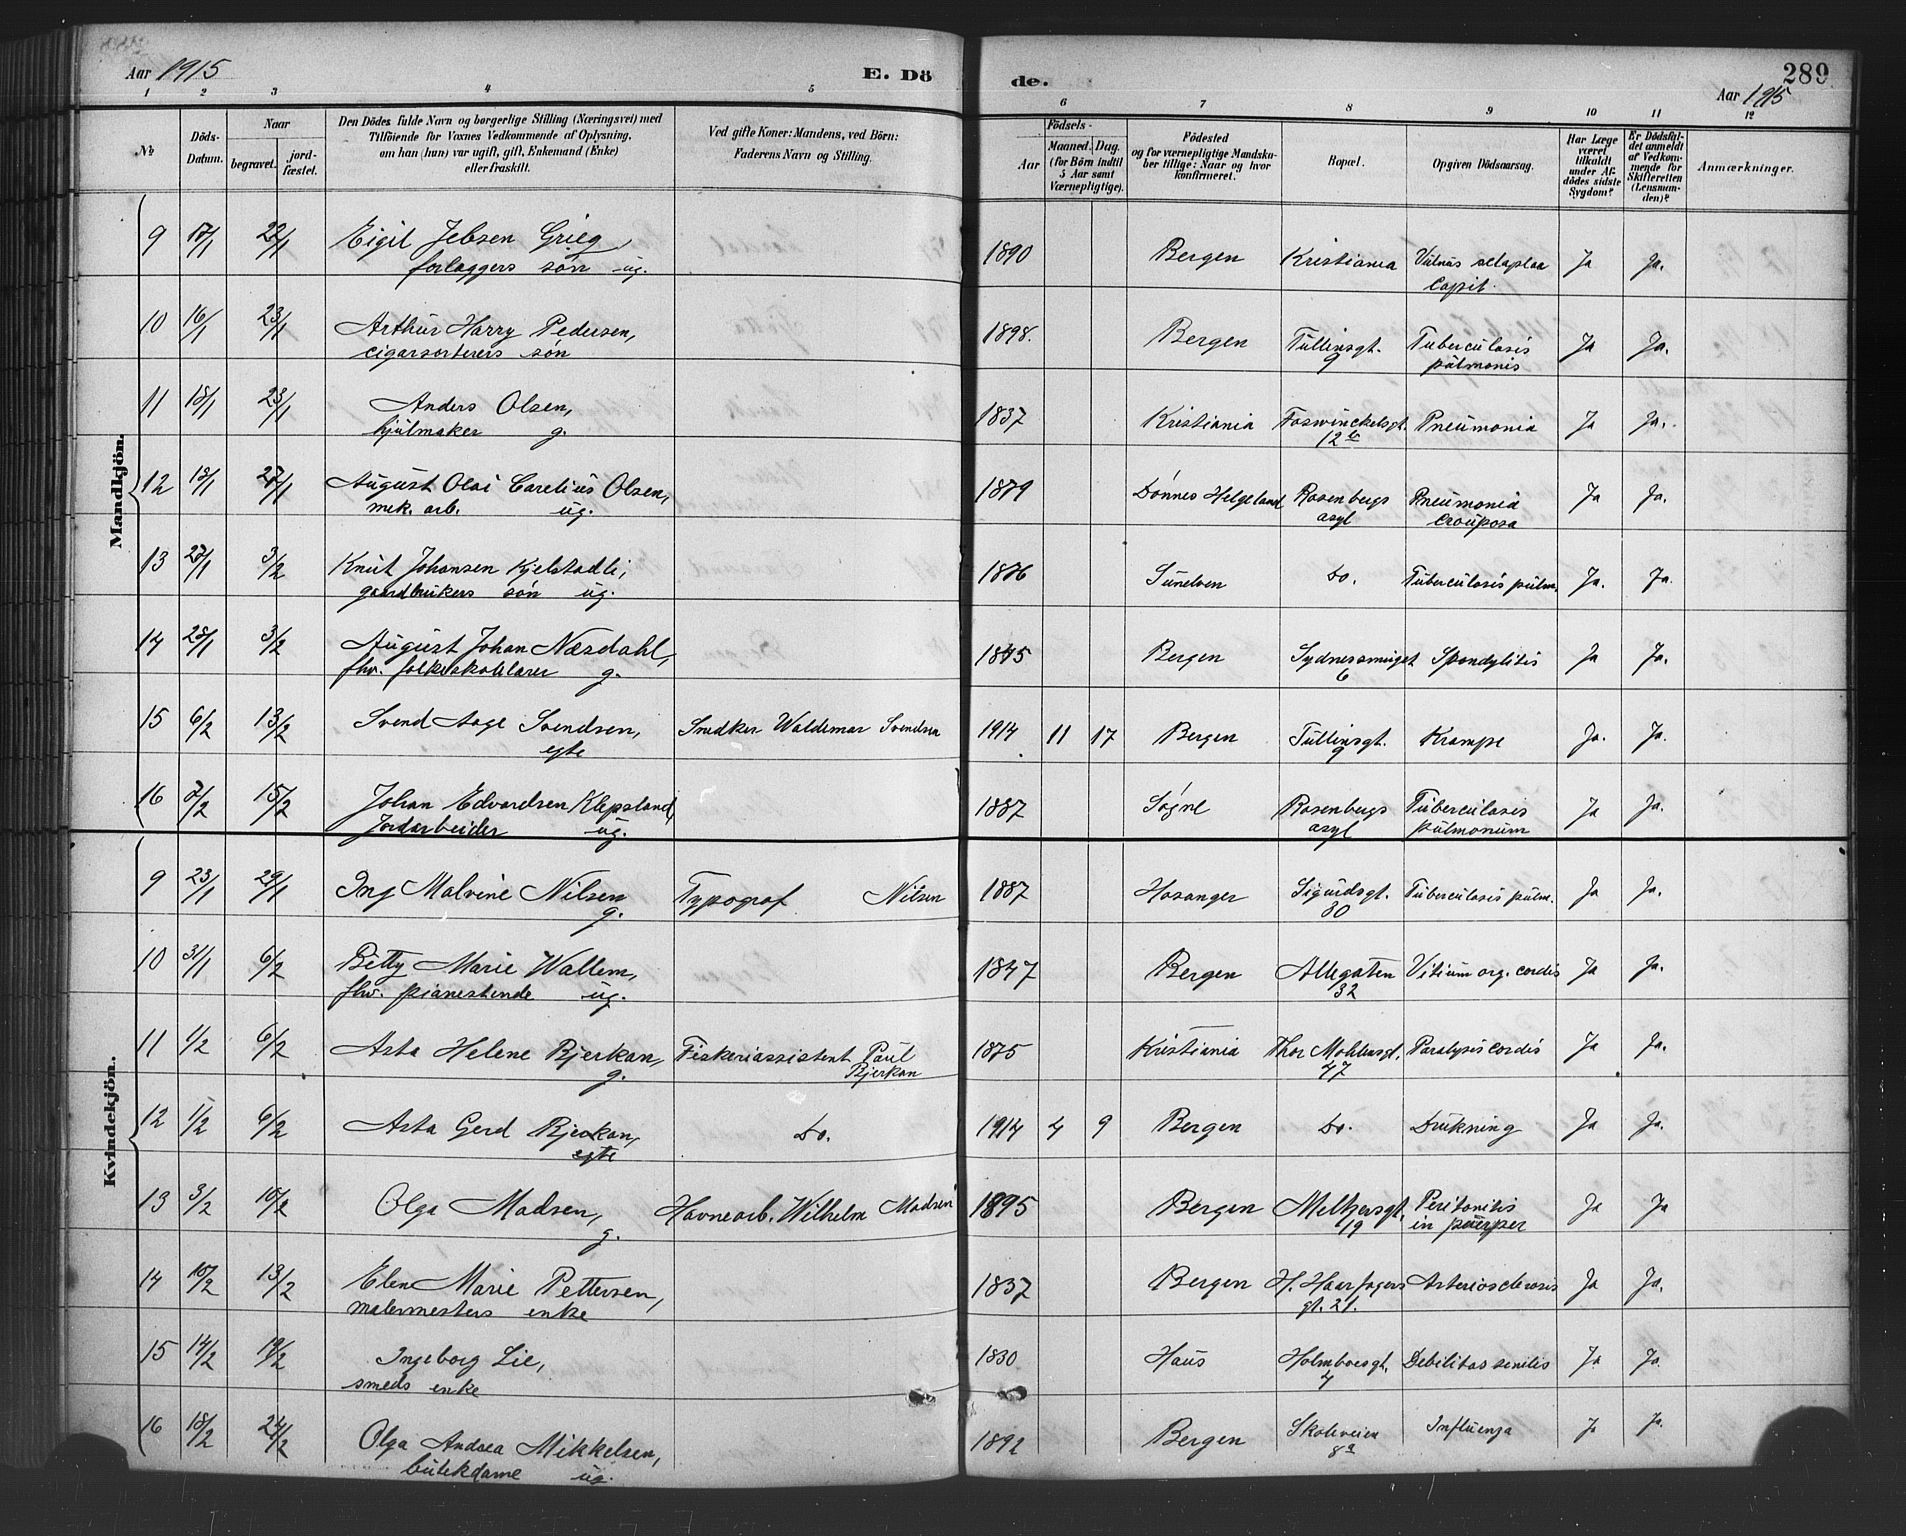 Aar 1915
E. Dö
de.
289
Aar 1915
1 2 3 4 5 6 7 8 9 10 11 12
№
Döds-Datum.
Naar
begravet.
jord-fæstet.
Den Dödes fulde Navn og borgerlige Stilling (Næringsvei) med
Tilföiende for Voxnes Vedkommende af Oplysning,
om han (hun) var ugift, gift, Enkemand (Enke)
eller fraskilt.
Ved gifte Koner: Mandens, ved Börn:
Faderens Navn og Stilling.
Födsels-
Aar
Maaned. Dag.
(for Börn indtil
5 Aar samt
Værnepligtige).
Födested
og for værnepligtige Mandska-
ber tillige: Naar og hvor
konfirmeret.
Bopæl.
Opgiven Dödsaarsag.
Har Læge
været
tilkaldt
under Af-
dödes sidste
Sygdom?
Er Dödsfal-
det anmeldt
af Vedkom-
mende for
Skifteretten
(Lensman-
den)?
Anmærkninger.
Mandkjön.
9 17/1 22/1 Eigil Jebsen Grieg, 1890 Bergen Kristiania Vulnus scloplaa Ja Ja.
forlæggers søn ug. Capit.
10 16/1 23/1 Arthur Harry Pedersen, 1898. Bergen Tullinsgt. Tuberculosis Ja Ja.
cigarsorterers søn 9 pulmonis
11 18/1 23/1 Anders Olsen, 1837 Kristiania Foswinckelsgt. Pneumonia Ja Ja.
hjulmaker g. 12 b
12 18/1 27/1 August Olai Carelius Olsen, 1879 Dønnes Helgeland Rosenbergs Pneumonia Ja Ja.
mek. arb. ug. asyl crouposa
13 27/1 3/2 Knut Johansen Kjelstadli, 1876 Sunelven Do. Tuberculosis pulm. Ja. Ja.
gaardbrukers søn ug.
14 28/1 3/2 August Johan Næsdahl, 1845 Bergen Sydnessmuget Spondylitis Ja Ja.
fhv. folkeskolelærer g. 6
15 6/2 13/2 Svend Aage Svendsen, Snedker Waldemar Svendsen 1914 11 17 Bergen Tullinsgt. Krampe Ja. Ja.
egte 9
16 7/2 15/2 Johan Edvardsen Klepsland, 1887 Søgne Rosenbergs Tuberculosis Ja Ja.
Jordarbeider ug. asyl pulmonum
Kvindekjön.
9 23/1 29/1 Ing Malvine Nilsen Typograf Nilsen 1887 Hosanger Sigurdsgt. Tuberculosis pulm. Ja Ja.
g. 30
10 31/1 6/2 Betty Marie Wallem, 1847 Bergen Allegaten Vitium org. cordis Ja Ja.
fhv. pianistinde ug. 32
11 1/2 6/2 Asta Helene Bjerkan, Fiskeriassistent Paul 1875 Kristiania Thor Mohlensgt. Paralysis cordis Ja Ja.
g. Bjerkan 47
12 1/2 6/2 Asta Gerd Bjerkan, Do. 1914 4 9 Bergen Do. Drukning Ja Ja.
egte
13 3/2 10/2 Olga Madsen, Havnearb. Wilhelm Madsen 1895 Bergen Meltzersgt. Peritonitis Ja Ja
g. 19 in puerper
14 10/2 13/2 Elen Marie Pettersen, 1837 Bergen H. Haarfagers Arteriosclerosis Ja Ja.
malermesters enke gt. 21.
15 14/2 19/2 Ingeborg Lie, 1830 Haus Holmboesgt. Debilitas senilis Ja Ja.
smeds enke 4
16 18/2 24/2 Olga Andrea Mikkelsen, 1892 Bergen Skoleveien Influenza Ja Ja.
butikdame ug. 8a